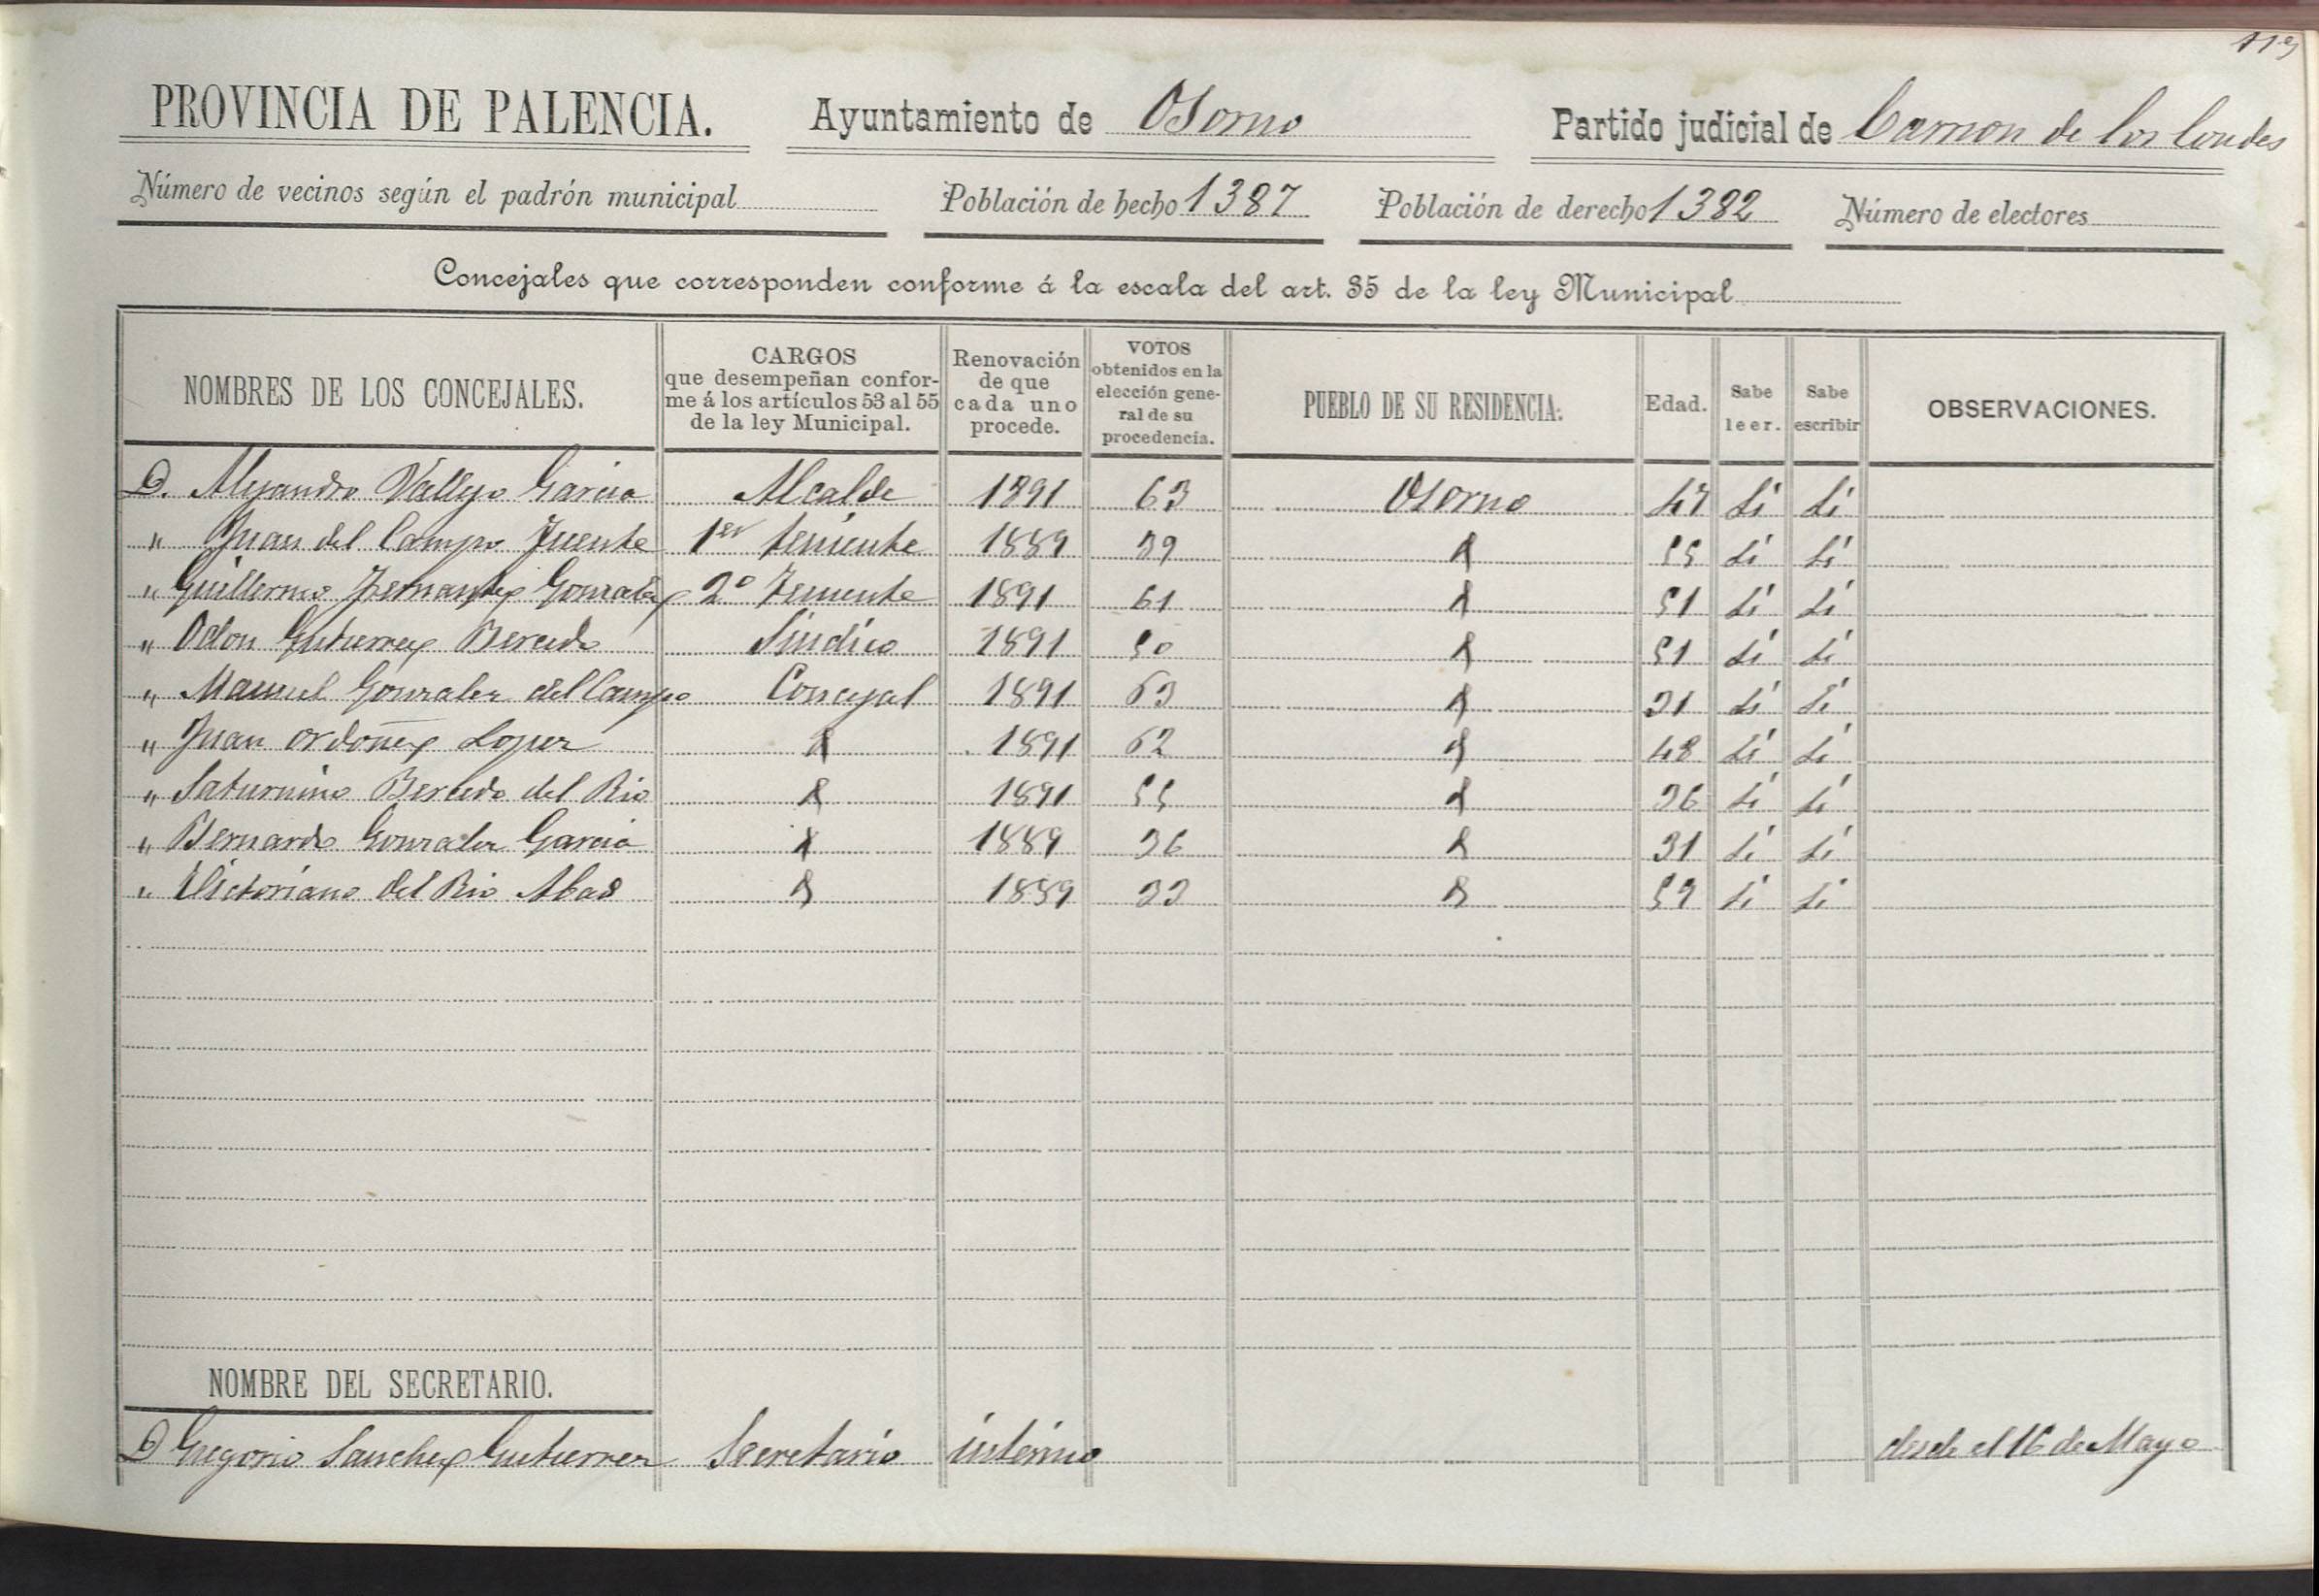 PROVINCIA DE PALENCIA. Ayuntamiento de Osorno Partido judicial de Carrion de los Condes
Número de vecinos según el padrón municipal Población de hecho 1387 Población de derecho 1382 Número de electores
Concejales que corresponden conforme á la escala del art. 35 de la ley Municipal
NOMBRES DE LOS CONCEJALES. CARGOS que desempeñan confor-me á los artículos 53 al 55 de la ley Municipal. Renovación de que cada uno procede. VOTOS obtenidos en la elección gene-ral de su procedencia. PUEBLO DE SU RESIDENCIA. Edad. Sabe leer. Sabe escribir OBSERVACIONES.
D. Alejandro Vallejo Garcia Alcalde 1891 63 Osorno 47 Si Si
" Juan del Campo Fuente 1er teniente 1889 39 55 Si Si
" Guillermo Fernandez Gonzalez 2º Teniente 1891 61 51 Si Si
" Odon Gutierrez Bercedo Sindico 1891 50 51 Si Si
" Manuel Gonzalez del Campo Concejal 1891 63 31 Si Si
" Juan Ordoñez Lopez 1891 62 48 Si Si
" Saturnino Bercedo del Rio 1891 55 36 Si Si
" Bernardo Gonzalez Garcia 1889 36 31 Si Si
" Victoriano del Rio Abad 1889 33 Si Si
NOMBRE DEL SECRETARIO.
D Gregorio Sanchez Gutierrez Secretario interino desde el 16 de Mayo